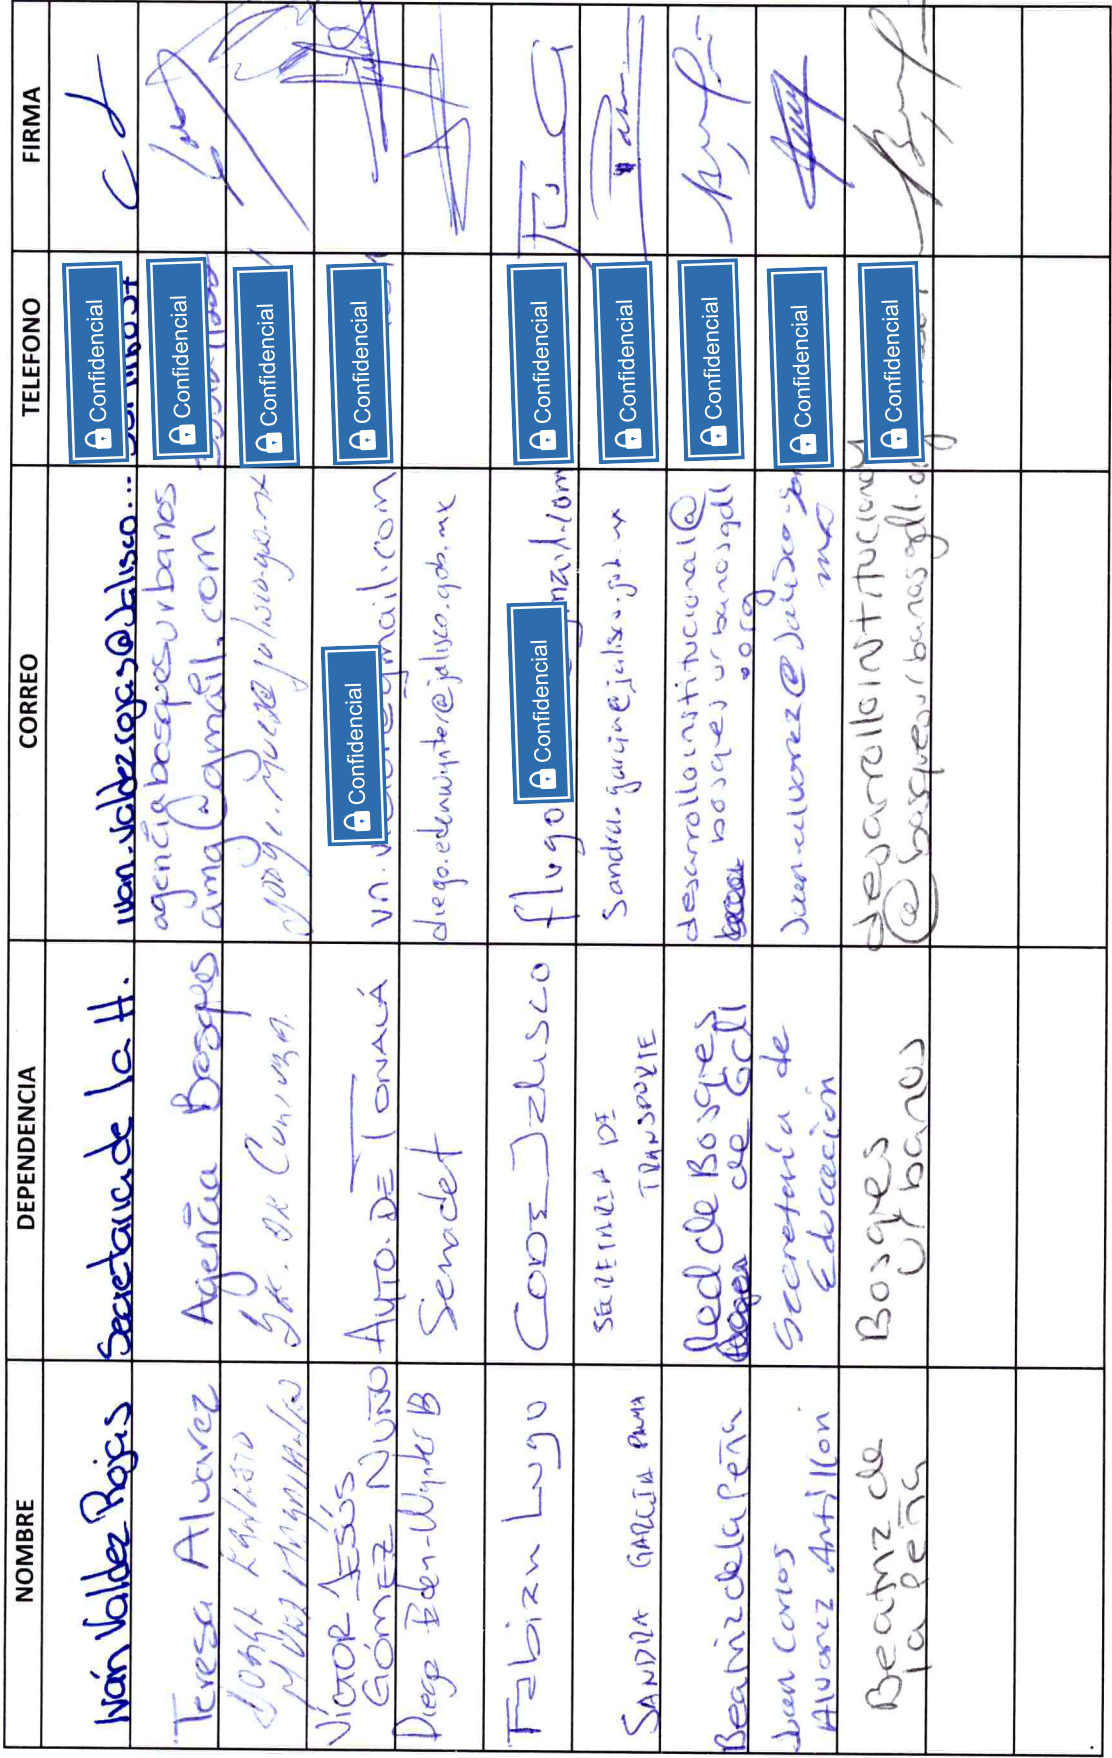 NOMBRE DEPENDENCIA CORREO TELEFONO FIRMA
Iván Valdez Rojas Secretaria de la H. ivan.valdezrojas@Jalisco... Confidencial
Teresa Alvarez Agencia Bosques agenciabosquesurbanos
amg@gmail.com Confidencial
Confidencial
VÍCTOR JESÚS
GÓMEZ NUÑO AYTO. DE TONALÁ vn. Confidencial gmail.com Confidencial
Diego Eden-Wynter B Semadet diego.edenwynter@jalisco.gob.mx
Fabian Lugo CODE Jalisco flugo Confidencial mail.com Confidencial
SANDRA GARCIA PALMA SECRETARIA DE
TRANSPORTE sandra.garcia@jalisco.gob.mx Confidencial
Beatriz de la Peña Red de Bosques
de Gdl desarrolloinstitucional@
bosquesurbanosgdl
.org Confidencial
Juan Carlos
Alvarez Antillon Secretaría de
Educación juan.alvarez@jalisco.go
mx Confidencial
Beatriz de
la Peña Bosques
Urbanos desarrolloinstitucional
@bosquesurbanosgdl.org Confidencial